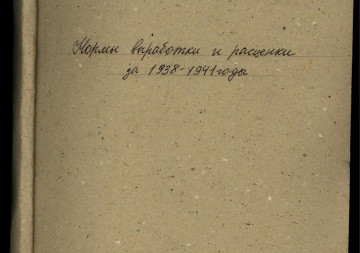 Нормы выработки и расценки
за 1938-1941 годы